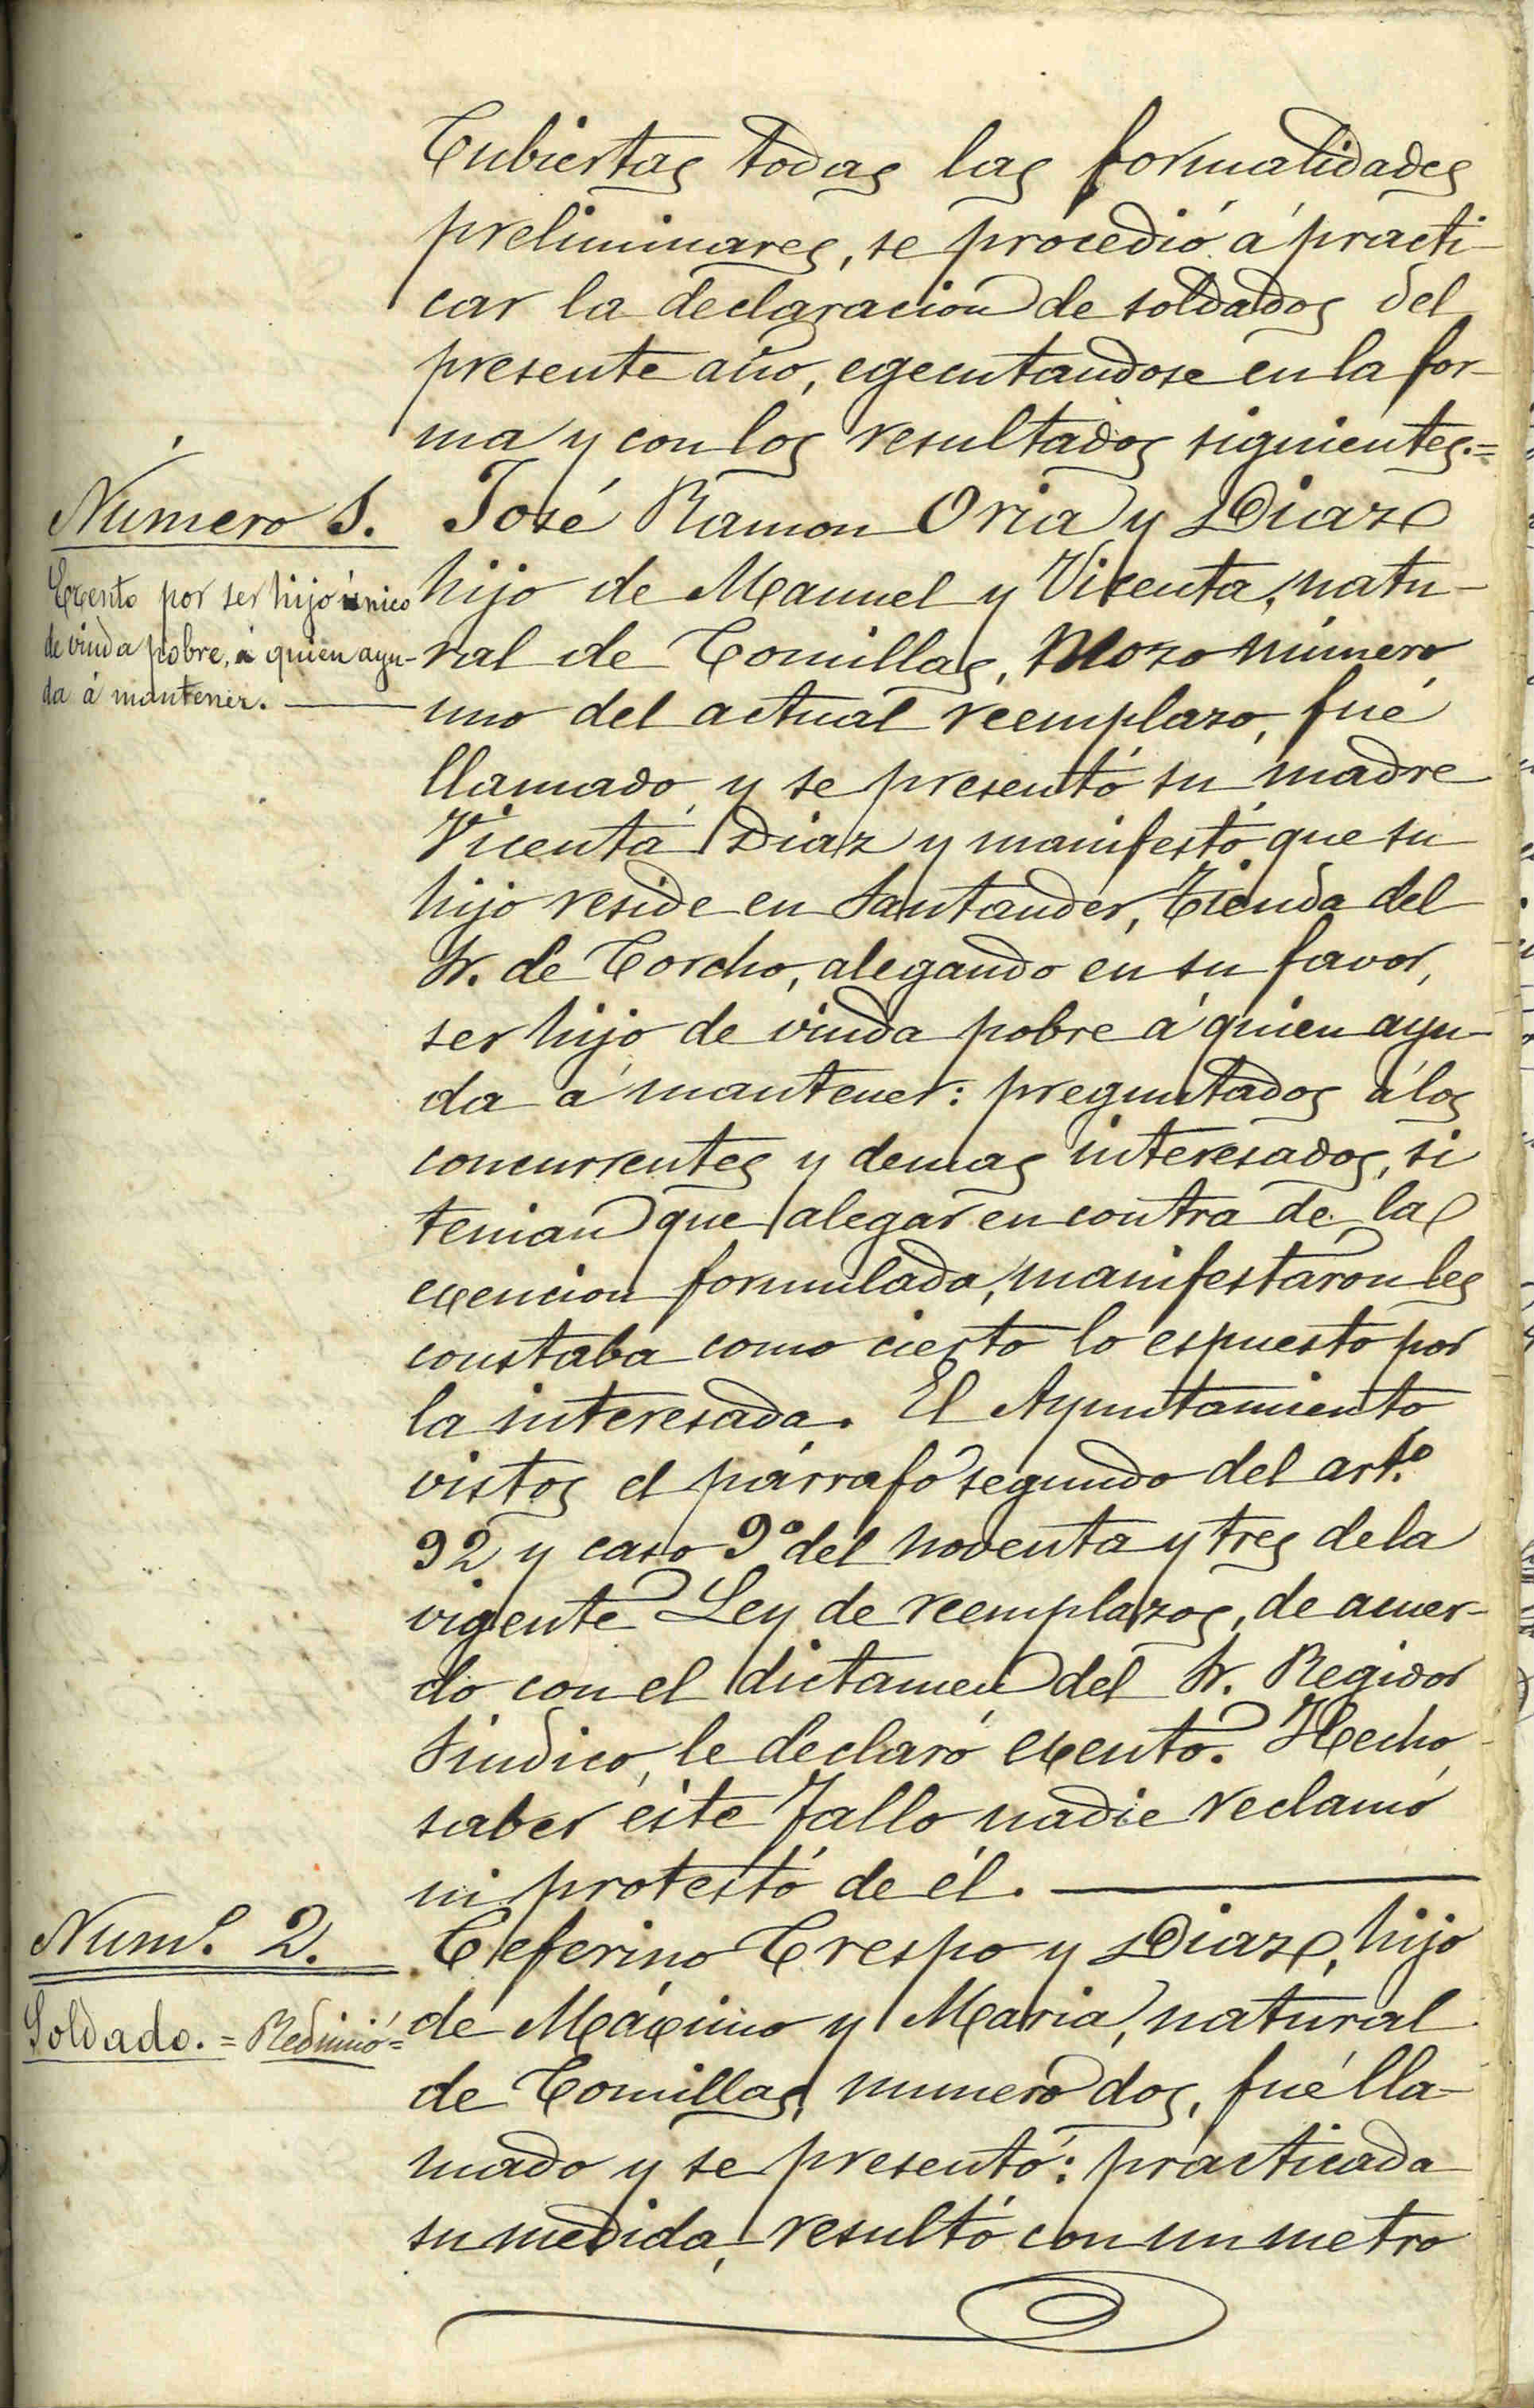 Cubiertas todas las formalidades
preliminares, se procedió á practi-
car la declaracion de soldados del
presente año, egecutandose en la for-
ma y con los resultados siguientes.=
Número 1.
Exento por ser hijo único
de viuda pobre, á quien ayu-
da á mantener.
José Ramon Oria y Diaz
hijo de Manuel y Vicenta, natu-
ral de Comillas, Mozo número
uno del actual reemplazo, fué
llamado y se presentó su madre
Vicenta Diaz y manifestó que su
hijo reside en Santander, Tienda del
Sr. de Corcho, alegando en su favor,
ser hijo de viuda pobre á quien ayu-
da á mantener: preguntados á los
concurrentes y demas interesados, si
tenian que alegar en contra de la
exencion formulada, manifestaron les
constaba como cierto lo espuesto por
la interesada. El Ayuntamiento
vistos el párrafo segundo del art.º
92 y caso 9º del noventa y tres de la
vigente Ley de reemplazos, de acuer-
do con el dictamen del Sr. Regidor
Sindico, le declaró exento. Hecho
saber este fallo nadie reclamó
ni protestó de él.
Num.º 2.
Soldado. = Redimió =
Ceferino Crespo y Diaz, hijo
de Máximo y Maria, natural
de Comillas, numero dos, fué lla-
mado y se presentó: practicada
su medida, resultó con un metro